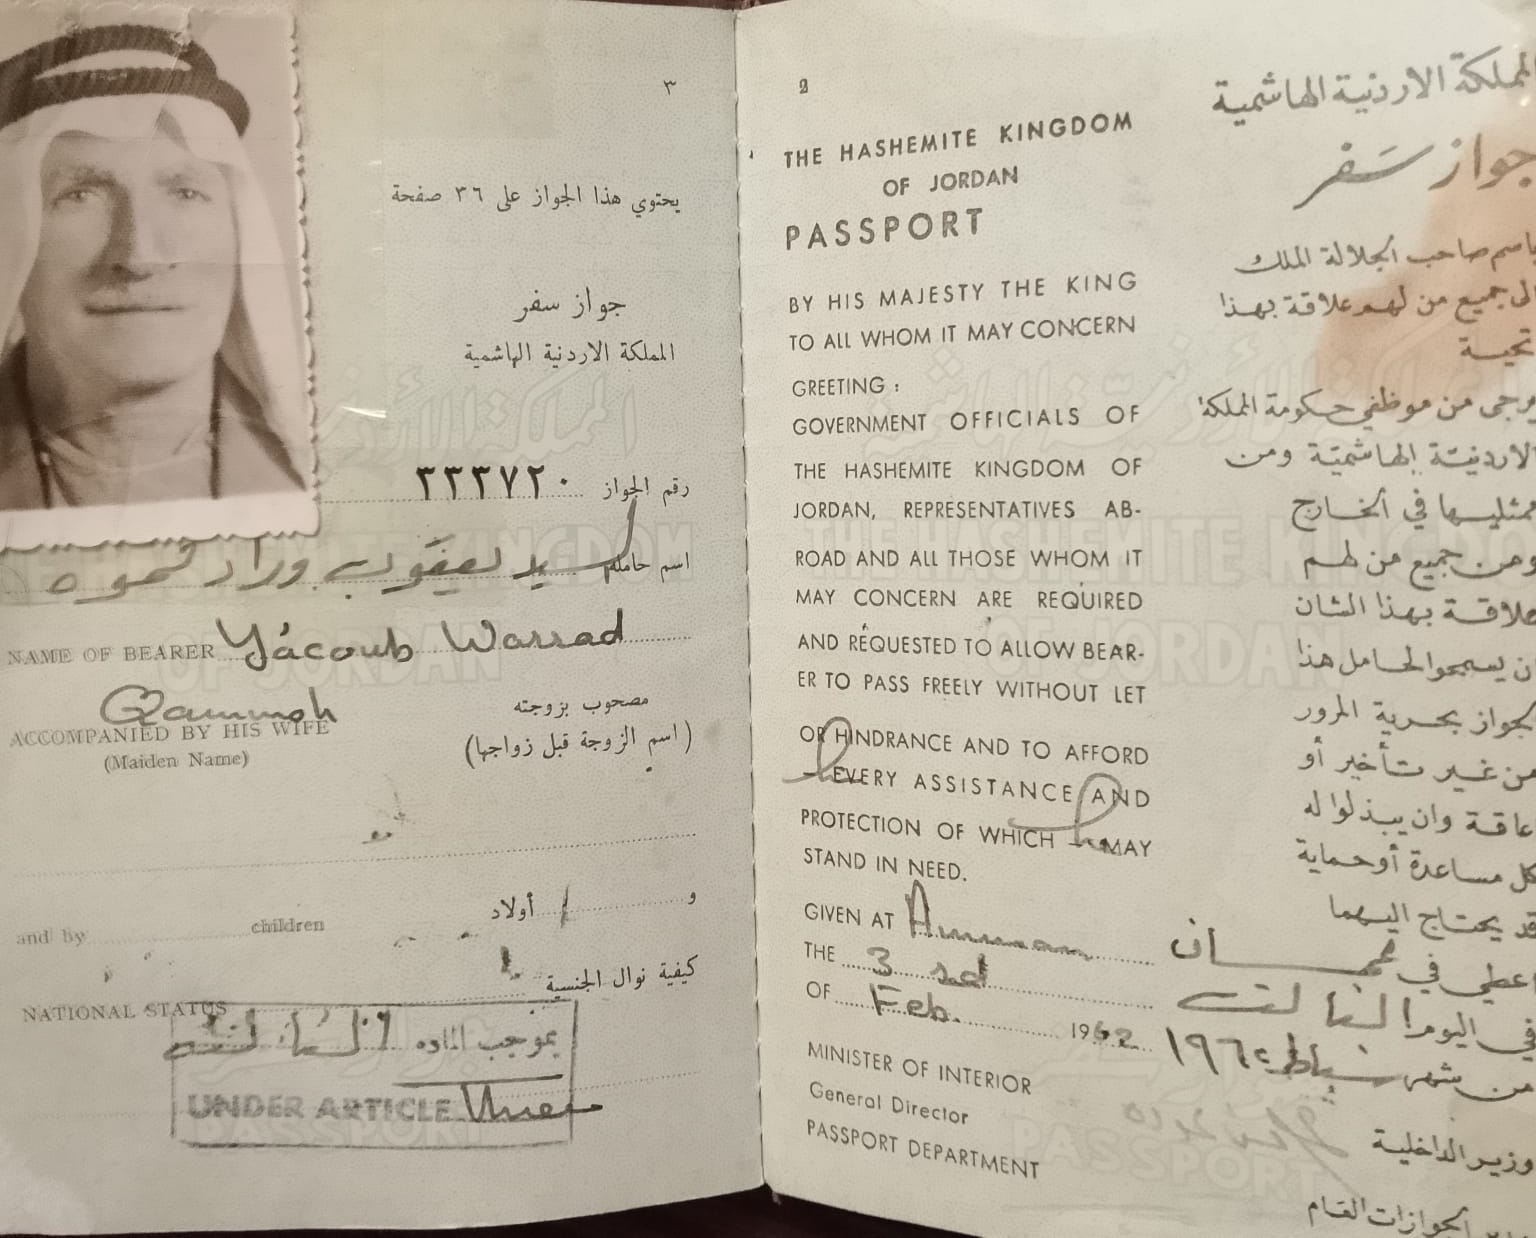 ٣
يحتوي هذا الجواز على ٣٦ صفحة
جواز سفر
المملكة الاردنية الهاشمية
رقم الجواز ٣٣٣٧٢٠
اسم حامله السيد يعقوب وراد قموه
NAME OF BEARER Yácoub Warrad
Qammoh
مصحوب بزوجته
ACCOMPANIED BY HIS WIFE
(اسم الزوجة قبل زواجها)
(Maiden Name)
و أولاد
and by children
كيفية نوال الجنسية
NATIONAL STATUS
بموجب المادة الثالثة
UNDER ARTICLE Three
2
THE HASHEMITE KINGDOM
OF JORDAN
PASSPORT
BY HIS MAJESTY THE KING
TO ALL WHOM IT MAY CONCERN
GREETING :
GOVERNMENT OFFICIALS OF
THE HASHEMITE KINGDOM OF
JORDAN, REPRESENTATIVES AB-
ROAD AND ALL THOSE WHOM IT
MAY CONCERN ARE REQUIRED
AND REQUESTED TO ALLOW BEAR-
ER TO PASS FREELY WITHOUT LET
OR HINDRANCE AND TO AFFORD
he EVERY ASSISTANCE AND
PROTECTION OF WHICH he MAY
STAND IN NEED.
GIVEN AT Amman
THE 3rd
OF Feb. 1962
MINISTER OF INTERIOR
General Director
PASSPORT DEPARTMENT
المملكة الاردنية الهاشمية
جواز سفر
باسم صاحب الجلالة الملك
الى جميع من لهم علاقة بهذا
تحية
يرجى من موظفي حكومة المملكة
الاردنية الهاشمية ومن
ممثليها في الخارج
ومن جميع من لهم
علاقة بهذا الشان
ان يسمحوا لحامل هذا
الجواز بحرية المرور
من غير تأخير أو
عاقة وان يبذلوا له
كل مساعدة أو حماية
قد يحتاج اليهما
اعطي في عمان
في اليوم الثالث
من شهر شباط ١٩٦٢
وزير الداخلية
الجوازات العام